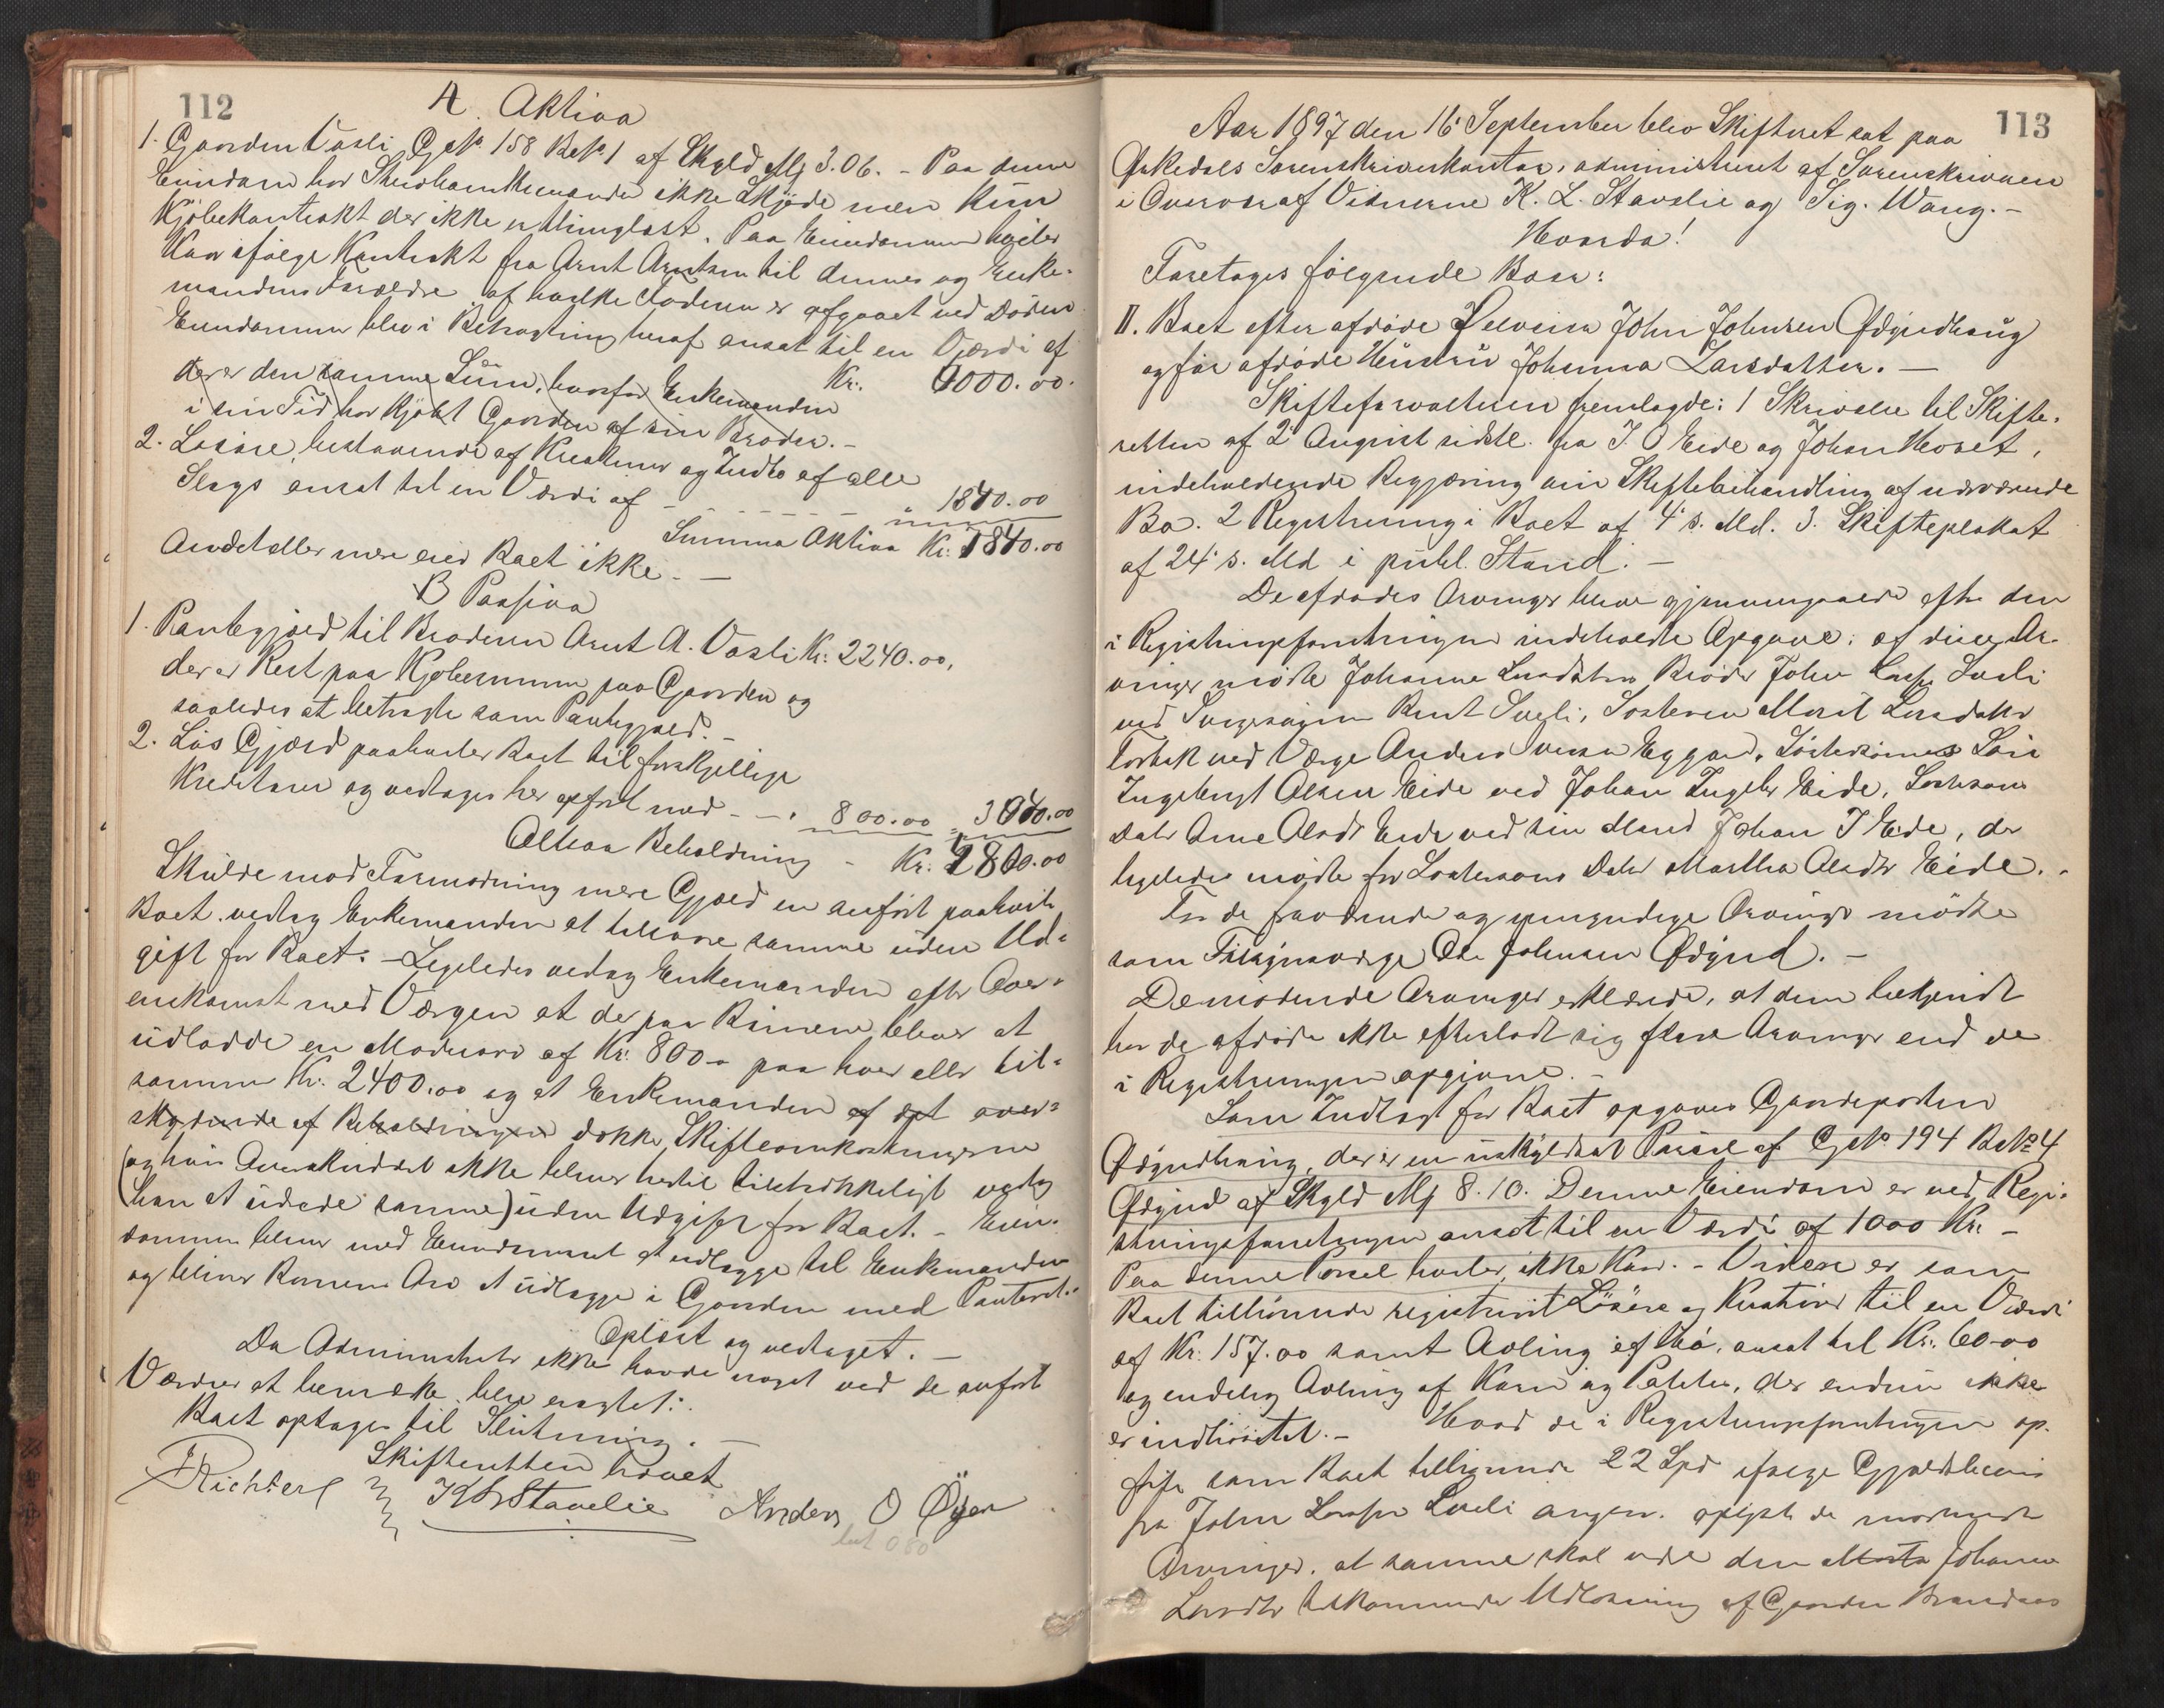 112
A. Aktiva
1. Gaarden Vasli G.No. 158 B.No. 1 af Skyld Mj 3.06. - Paa denne
Eiendom har Stervboenkemanden ikke Skjøde men kun
Kjøbekontrakt der ikke er thinglæst. Paa Eiendommen hviler
Kaar ifølge Kontrakt fra Arnt Arntsen til dennes og Enke-
mandens Forældre af hvilke Faderen er afgaaet ved Døden
Eiendommen blev i Betragtning heraf ansat til en Værdi af
Kr. 6000.00.
der er den samme Sum, hvorfor Enkemanden
i sin Tid har kjøbt Gaarden af sin Broder. -
2. Løsøre, bestaaende af Kreaturer og Indbo af alle
Slags ansat til en Værdi af - - - - - - - " 1840.00
Summa Aktiva Kr: 7840.00
Andet eller mere eier Boet ikke. -
B Passiva
1. Pantegjæld til Broderen Arnt A. Vasli Kr: 2240.00,
der er Rest paa Kjøbesummen paa Gaarden og
saaledes at betragte som Pantegjæld. -
2. Løs Gjæld paahviler Boet til forskjellige
Kreditorer og vedtages her opført med - - " 800.00 " 3040.00
Altsaa Beholdning - Kr: 4800.00
Skulde mod Formodning mere Gjæld en anført paahvile
Boet vedtog Enkemanden at tilsvare samme uden Ud-
gift for Boet. - Ligeledes vedtog Enkemanden efter Over-
enskomst med Værgen at der paa Børnene bliver at
udlodde en Modersarv af Kr: 800 - paa hver eller til-
sammen Kr: 2400.00 og at Enkemanden af det over-
skydende af Beholdningen dække Skifteomkostningerne
(og hvis Overskuddet ikke bliver hertil tilstrækkeligt vedtog
han at udrede samme) uden Udgift for Boet. - Eien-
dommen bliver med Eiendomsret at udlægge til Enkemanden
og bliver Børnenes Arv at udlægge i Gaarden med Panteret. -
Oplæst og vedtaget. -
Da Administrator ikke havde noget ved de anførte
Værdier at bemærke blev eragtet:
Boet optages til Slutning. -
Skifteretten hævet
Richter K L Stavslie Anders O Öyen
113
Aar 1897 den 16' September blev Skifteret sat paa
Orkedals Sorenskriverkontor, administreret af Sorenskriveren
i Overvær af Vidnerne K. L. Stavslie og Sig. Wang. -
Hvorda!
Foretages følgende Boer:
II. Boet efter afdøde Selveier John Johnsen Ødgindhaug
og før afdøde Hustru Johanna Larsdatter. -
Skifteforvalteren fremlagde: 1 Skrivelse til Skifte-
retten af 2' August sidstl. fra J. O Eide og Johan Hoset,
indeholdende Begjæring om Skiftebehandling af nærværende
Bo. 2 Registrering i Boet af 4' s. Md. 3. Skifteplakat
af 24' s. Md i publ. Stand. -
De afdødes Arvinger blev gjennemgaaede efter den
i Registringsforretningen indeholdte Opgave; af disse Ar-
vinger mødte Johanna Larsdatters Broder John Larsen Sveli
ved Svigersønnen Bernt Sveli, Søsteren Marit Larsdatter
ved Værge Anders Eggen, Søstersønnens Søn
Ingebrigt Olsen Eide ved Johan Ingebr Eide, Søstersøns
Datter Ane Olsdtr Eide ved sin Mand Johan I Eide, der
ligeledes mødte for Søstersøns Datter Martha Olsdtr Eide. -
For de fraværende og umyndige Arvinger mødte
som Tilsynsværge Ole Johnsen Ødgind. -
De mødende Arvinger erklærede, at dem bekjendt
har de afdøde ikke efterladt sig flere Arvinger end de
i Registreringen opgivne. -
Som Indtægt for Boet opgaves Gaardeparten
Ødgindhaug, der er en uskyldsat Parcel af G.No. 194 B.No 4
Ødgind af Skyld Mj 8.10. Denne Eiendom er ved Regi-
streringsforretningen ansat til en Værdi af 1000 Kr. -
Paa denne Parcel hviler ikke Kaar. - Videre er som
Boet tilhørende registreret Løsøre og Kreaturer til en Værdi
af Kr. 157.00 samt Avling af Hø, ansat til Kr. 60.00
og endelig Avling af Korn og Poteter, der endnu ikke
er indhøstet. - Hvad de i Registreringsforretningen op-
førte som Boet tilhørende 22 Spd ifølge Gjældsbevis
fra John Larsen Sveli angaar oplyste de mødende
Arvinger, at samme skal være den Johanna
Larsdtr tilkommende Udløsning af Gaarden